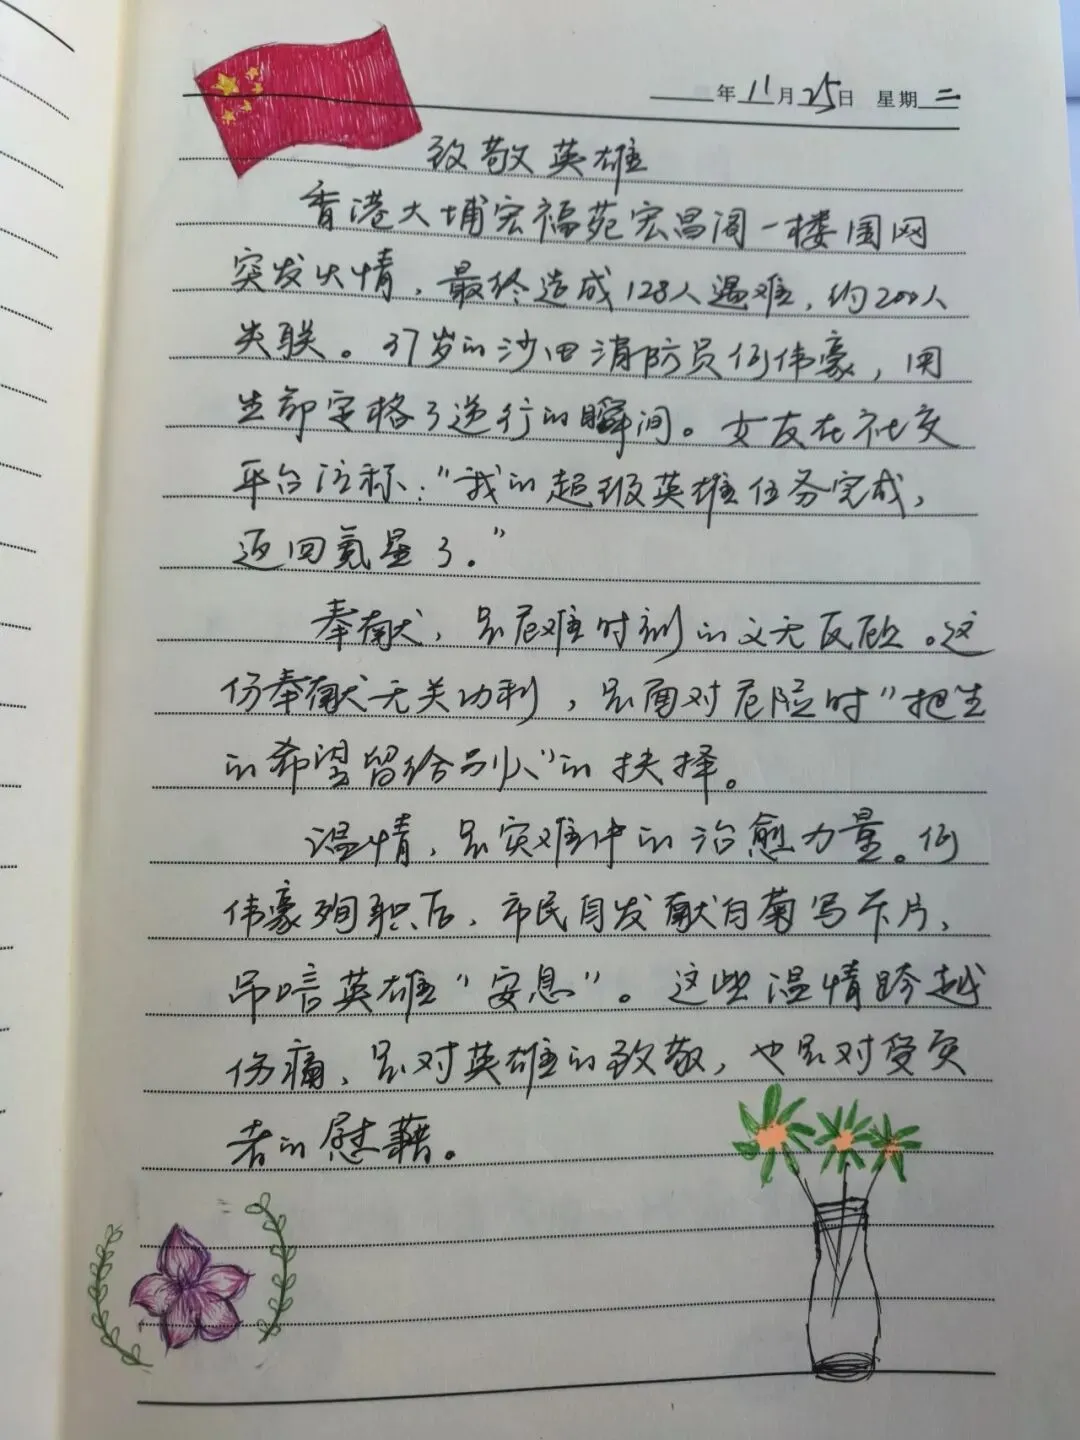 年11月25日 星期二
致敬英雄
香港大埔宏福苑宏昌阁一楼围网
突发火情，最终造成128人遇难，约200人
失联。37岁的沙田消防员何伟豪，用
生命定格了逆行的瞬间。女友在社交
平台泣称："我的超级英雄任务完成，
返回氪星了。"
奉献，是危难时刻的义无反顾。这
份奉献无关功利，是面对危险时"把生
的希望留给别人"的抉择。
温情，是灾难中的治愈力量。何
伟豪殉职后，市民自发献白菊写卡片，
吊唁英雄"安息"。这些温情跨越
伤痛，是对英雄的致敬，也是对受灾
者的慰藉。